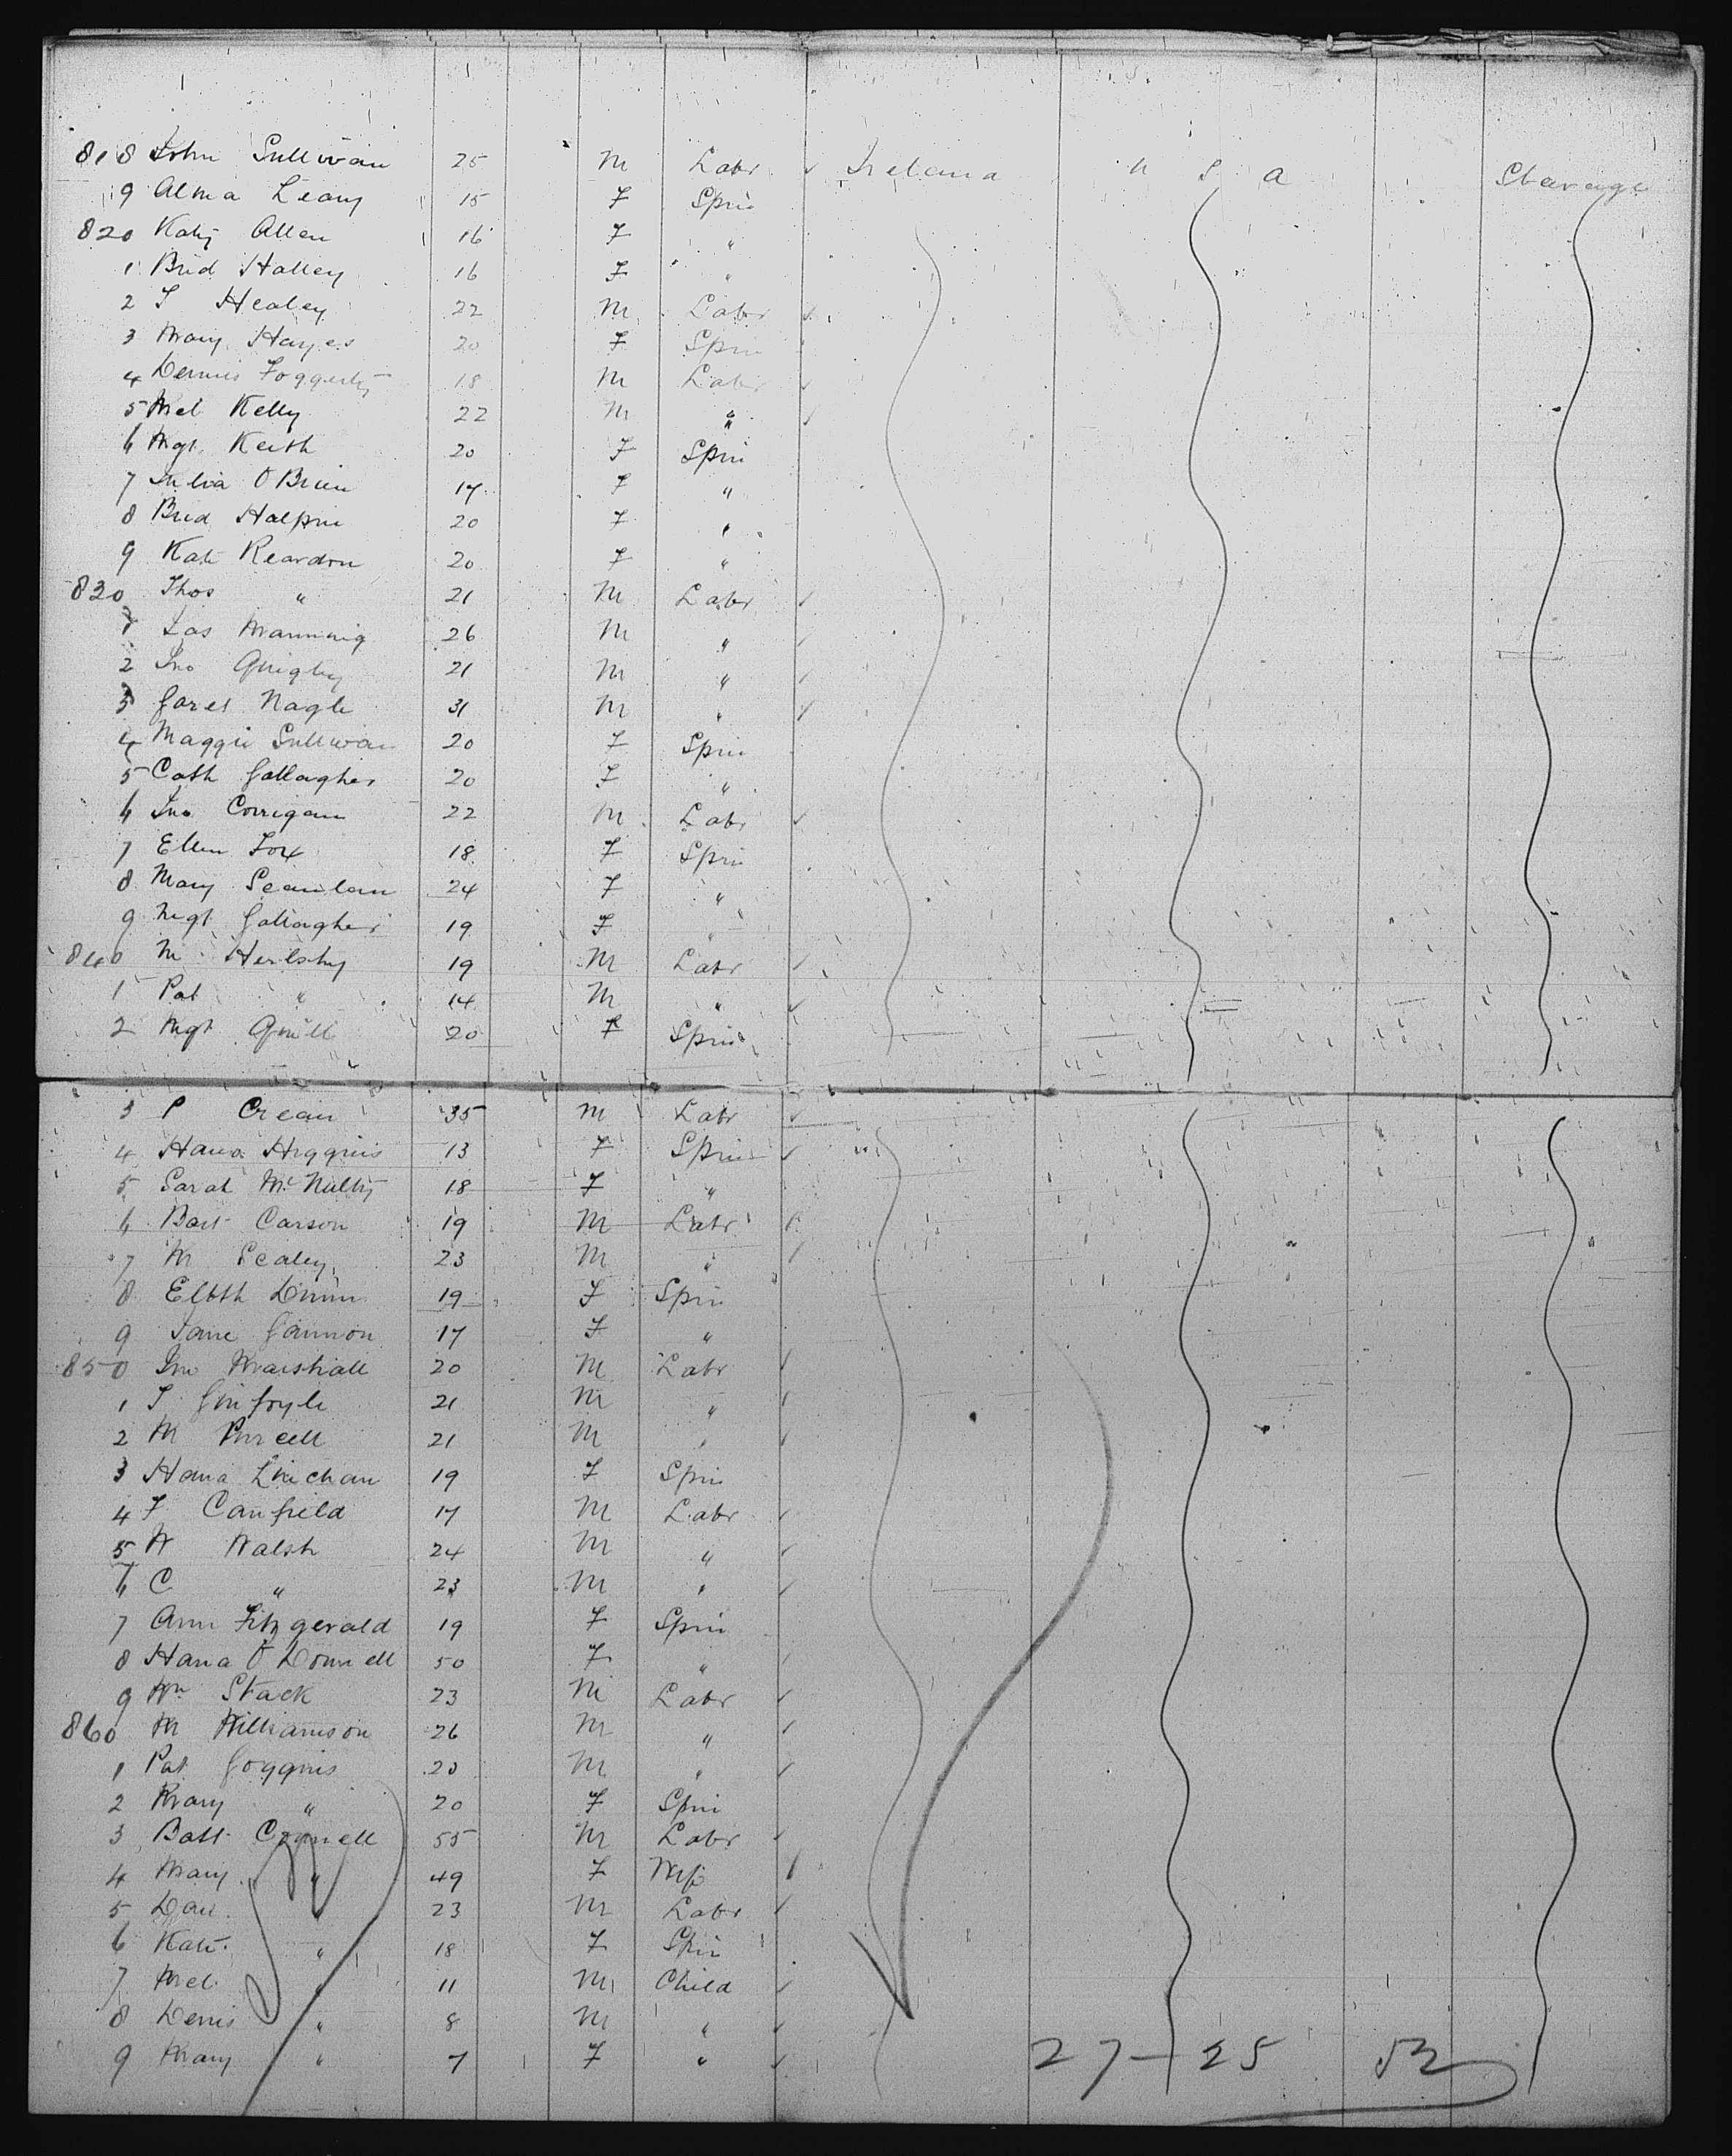 818 John Sullivan 25 M Labr ✓ Ireland U S A Steerage
9 Alma Leary 15 F Spin
820 Katy Allen 16 F "
1 Brid Halley 16 F "
2 T Healey 22 M Labr ✓
3 Mary Hayes 20 F Spin
4 Dennis Foggerty 18 M Labr ✓
5 Mcl Kelly 22 M " ✓
6 Mgt Keith 20 F Spin
7 Julia O Brien 17 F "
8 Brid Halpin 20 F "
9 Kate Reardon 20 F "
830 Thos " 21 M Labr ✓
1 Jas Manning 26 M " ✓
2 Jno Quigley 21 M " ✓
3 Garet Nagle 31 M " ✓
4 Maggie Sullivan 20 F Spin
5 Cath Gallagher 20 F "
6 Jno Corrigan 22 M Labr ✓
7 Ellen Fox 18 F Spin
8 Mary Scanlan 24 F "
9 Mgt Gallagher 19 F "
840 M Herlihy 19 M Labr ✓
1 Pat " 14 M " ✓
2 Mgt Quill 20 F Spin
3 P Crean 35 M Labr ✓
4 Hana Higgins 13 F Spin ✓
5 Sarah McNulty 18 F "
6 Bart Carson 19 M Labr ✓
7 M Scaley 23 M " ✓
8 Elbth Dunn 19 F Spin
9 Jane Gannon 17 F "
850 Jno Marshall 20 M Labr ✓
1 J Guifoyle 21 M " ✓
2 M Purcell 21 M " ✓
3 Hana Linehan 19 F Spin
4 F Canfield 17 M Labr ✓
5 W Walsh 24 M " ✓
6 C " 23 M " ✓
7 Ann Fitzgerald 19 F Spin
8 Hana O Donnell 50 F "
9 Wm Stack 23 M Labr ✓
860 M Williamson 26 M " ✓
1 Pat Goggins 20 M " ✓
2 Mary " 20 F Spin
3 Batt Connell 55 M Labr ✓
4 Mary " 49 F Wife
5 Dan " 23 M Labr ✓
6 Kate " 18 F Spin
7 Mcl " 11 M Child ✓
8 Denis " 8 M " ✓
9 Mary " 7 F " ✓
27 – 25 52